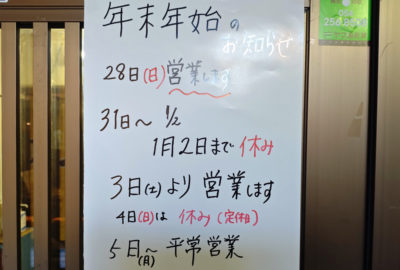 年末年始の
お知らせ
28日(日)営業します
31日～ 1/2
1月2日まで 休み
3日(土)より 営業します
4日(日)は 休み(定休日)
5日(月)～ 平常営業